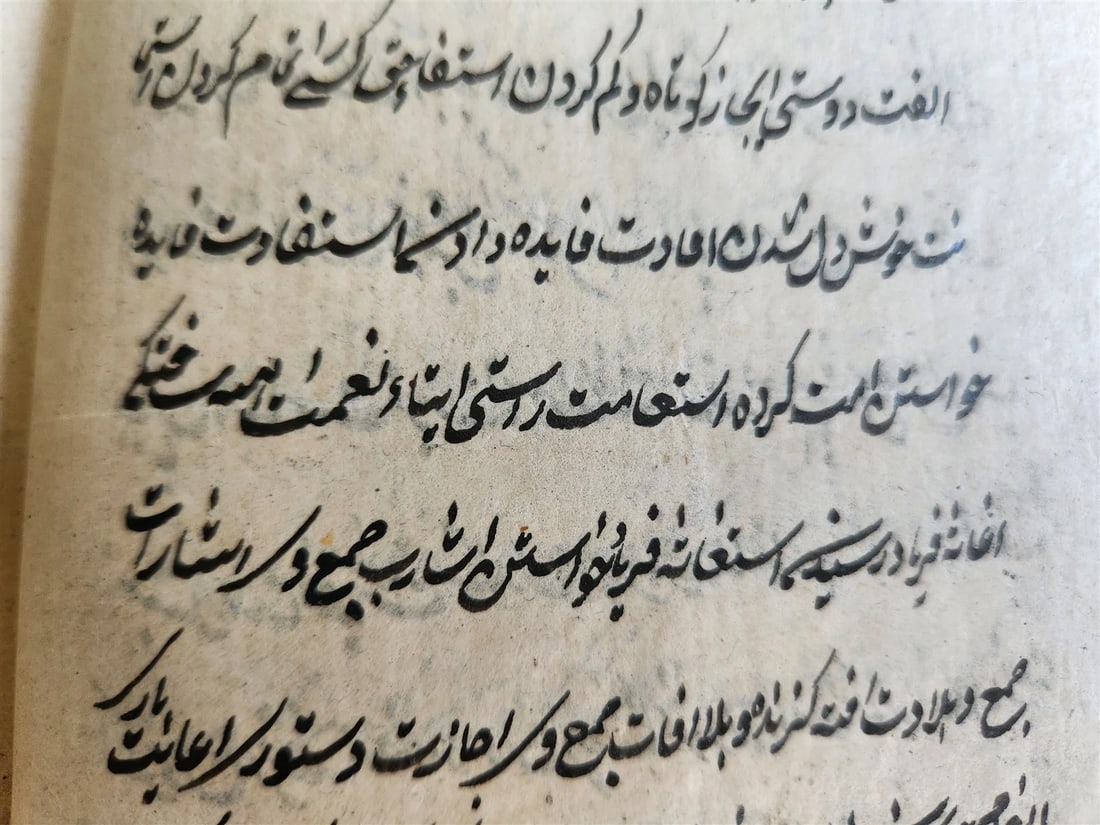 الفت دوستی ایجاز کوتاه و کم کردن استیفا حق کسے تمام کردن است
خوش دل شدن افادت فایده دادن استفادت فایده
خواستن امت کرده استقامت راستی ایتاء نعمت
اغاثه فریاد رسیدن استغاثه فریاد خواستن اشارب جمع وی اشارات
جمع و بلادت افت گزنده و بلا افات جمع وی اجازت دستوری اعانت یاری